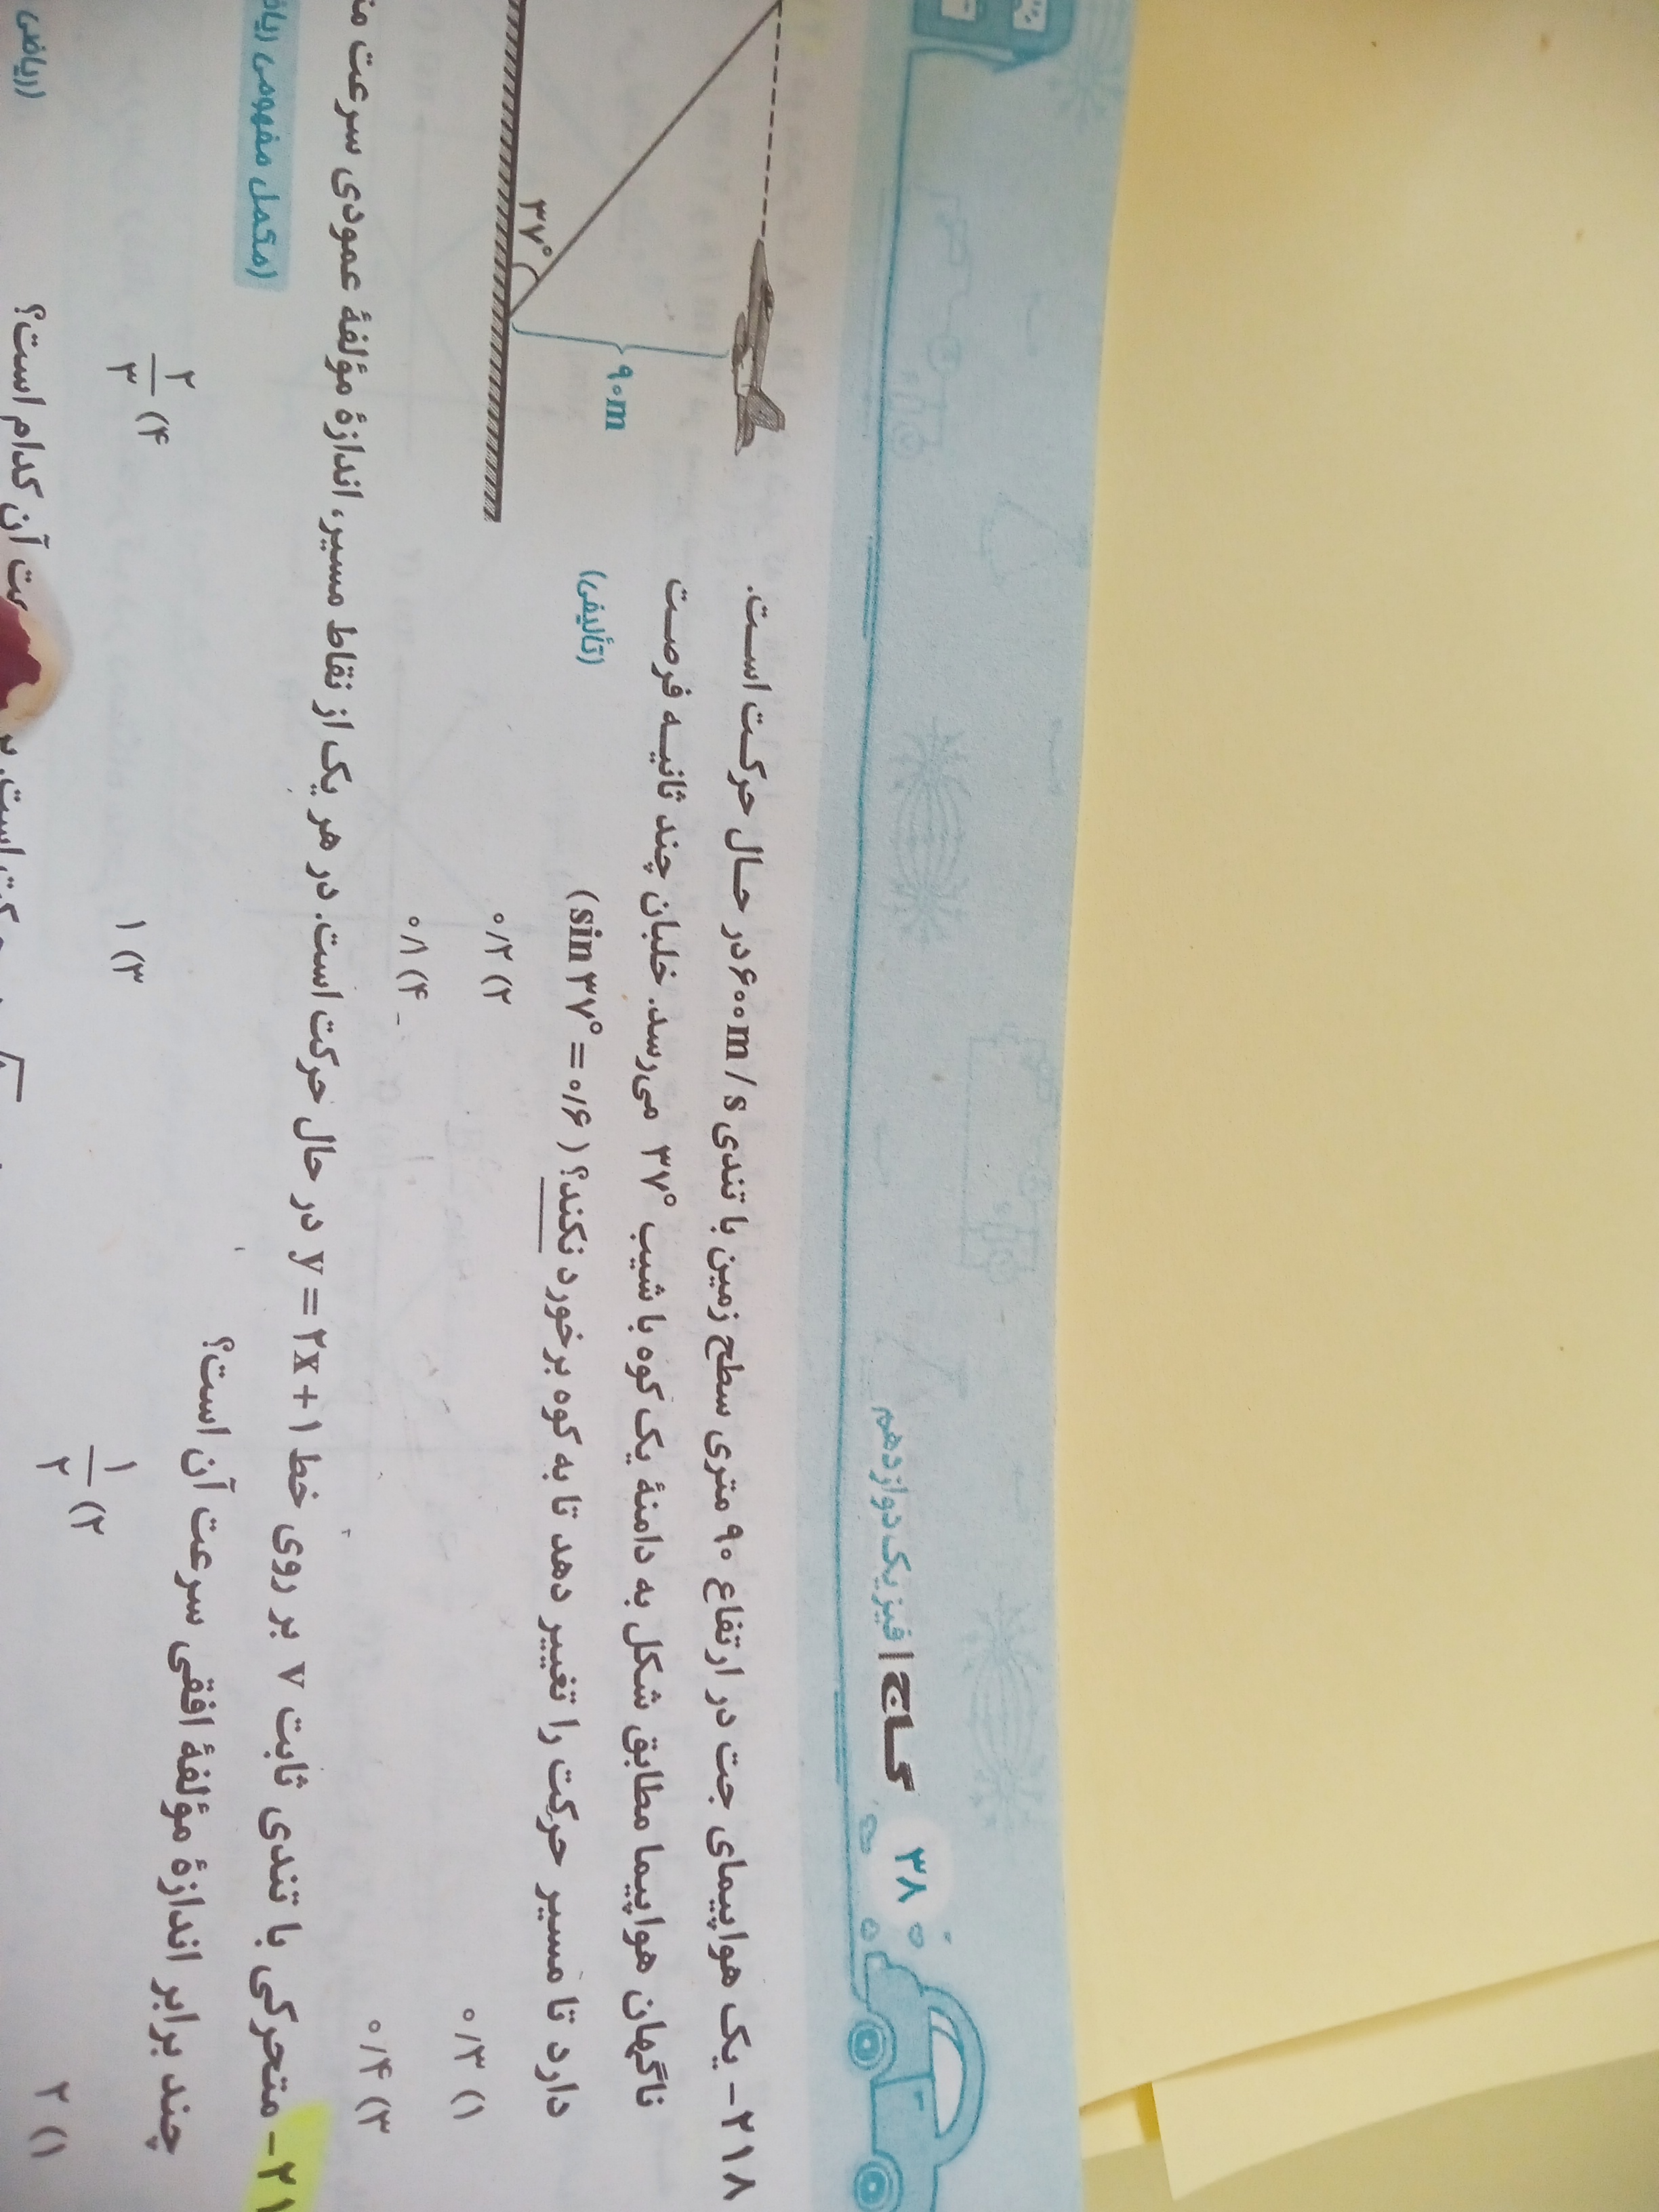 ۳۸ گاج | فیزیک دوازدهم
۲۱۸- یک هواپیمای جت در ارتفاع ۹۰ متری سطح زمین با تندی ۶۰۰m/s در حال حرکت است.
ناگهان هواپیما مطابق شکل به دامنهٔ یک کوه با شیب ۳۷° می‌رسد. خلبان چند ثانیه فرصت
دارد تا مسیر حرکت را تغییر دهد تا به کوه برخورد نکند؟ (sin۳۷°=۰/۶) (تألیفی)
۱) ۰/۳
۲) ۰/۲
۳) ۰/۴
۴) ۰/۸
۹۰m
۳۷°
متحرکی با تندی ثابت v بر روی خط y=۲x+۱ در حال حرکت است. در هر یک از نقاط مسیر، اندازهٔ مؤلفهٔ عمودی سرعت
چند برابر اندازهٔ مؤلفهٔ افقی سرعت آن است؟ (مکمل مفهومی
۱) ۲
۲) ۱/۲
۳) ۱
۴) ۲/۳
آن کدام است؟
(ریاضی